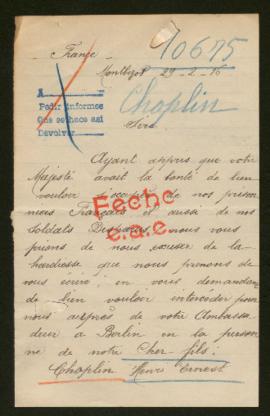 France
10675
Montbizot 29-2-16
Chaplin
A
Pedir informes
Que se hace así
Devolver
Sire
Ayant appris que votre
Majesté avait la bonté de bien
vouloir s'occuper de nos prison
niers Français et aussi de nos
Soldats Disparus, nous vous
prions de nous excuser de la
hardiesse que nous prenons de
vous écrire en vous demandant
de bien vouloir intercéder pour
nous auprès de votre Ambassa
deur à Berlin en la person
ne de notre cher fils.
Chaplin Henri Ernest
Fecho
c.a.e.